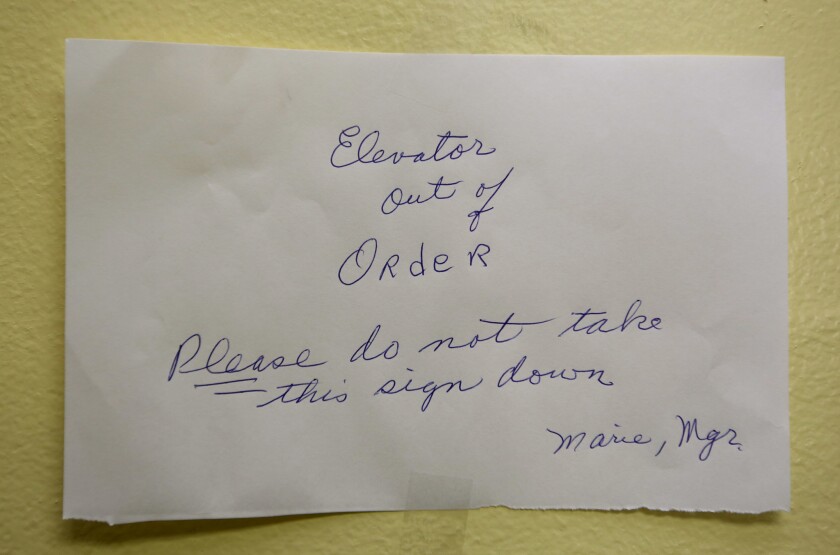 Elevator
out of
OrdeR
Please do not take
this sign down
Marie, Mgr.